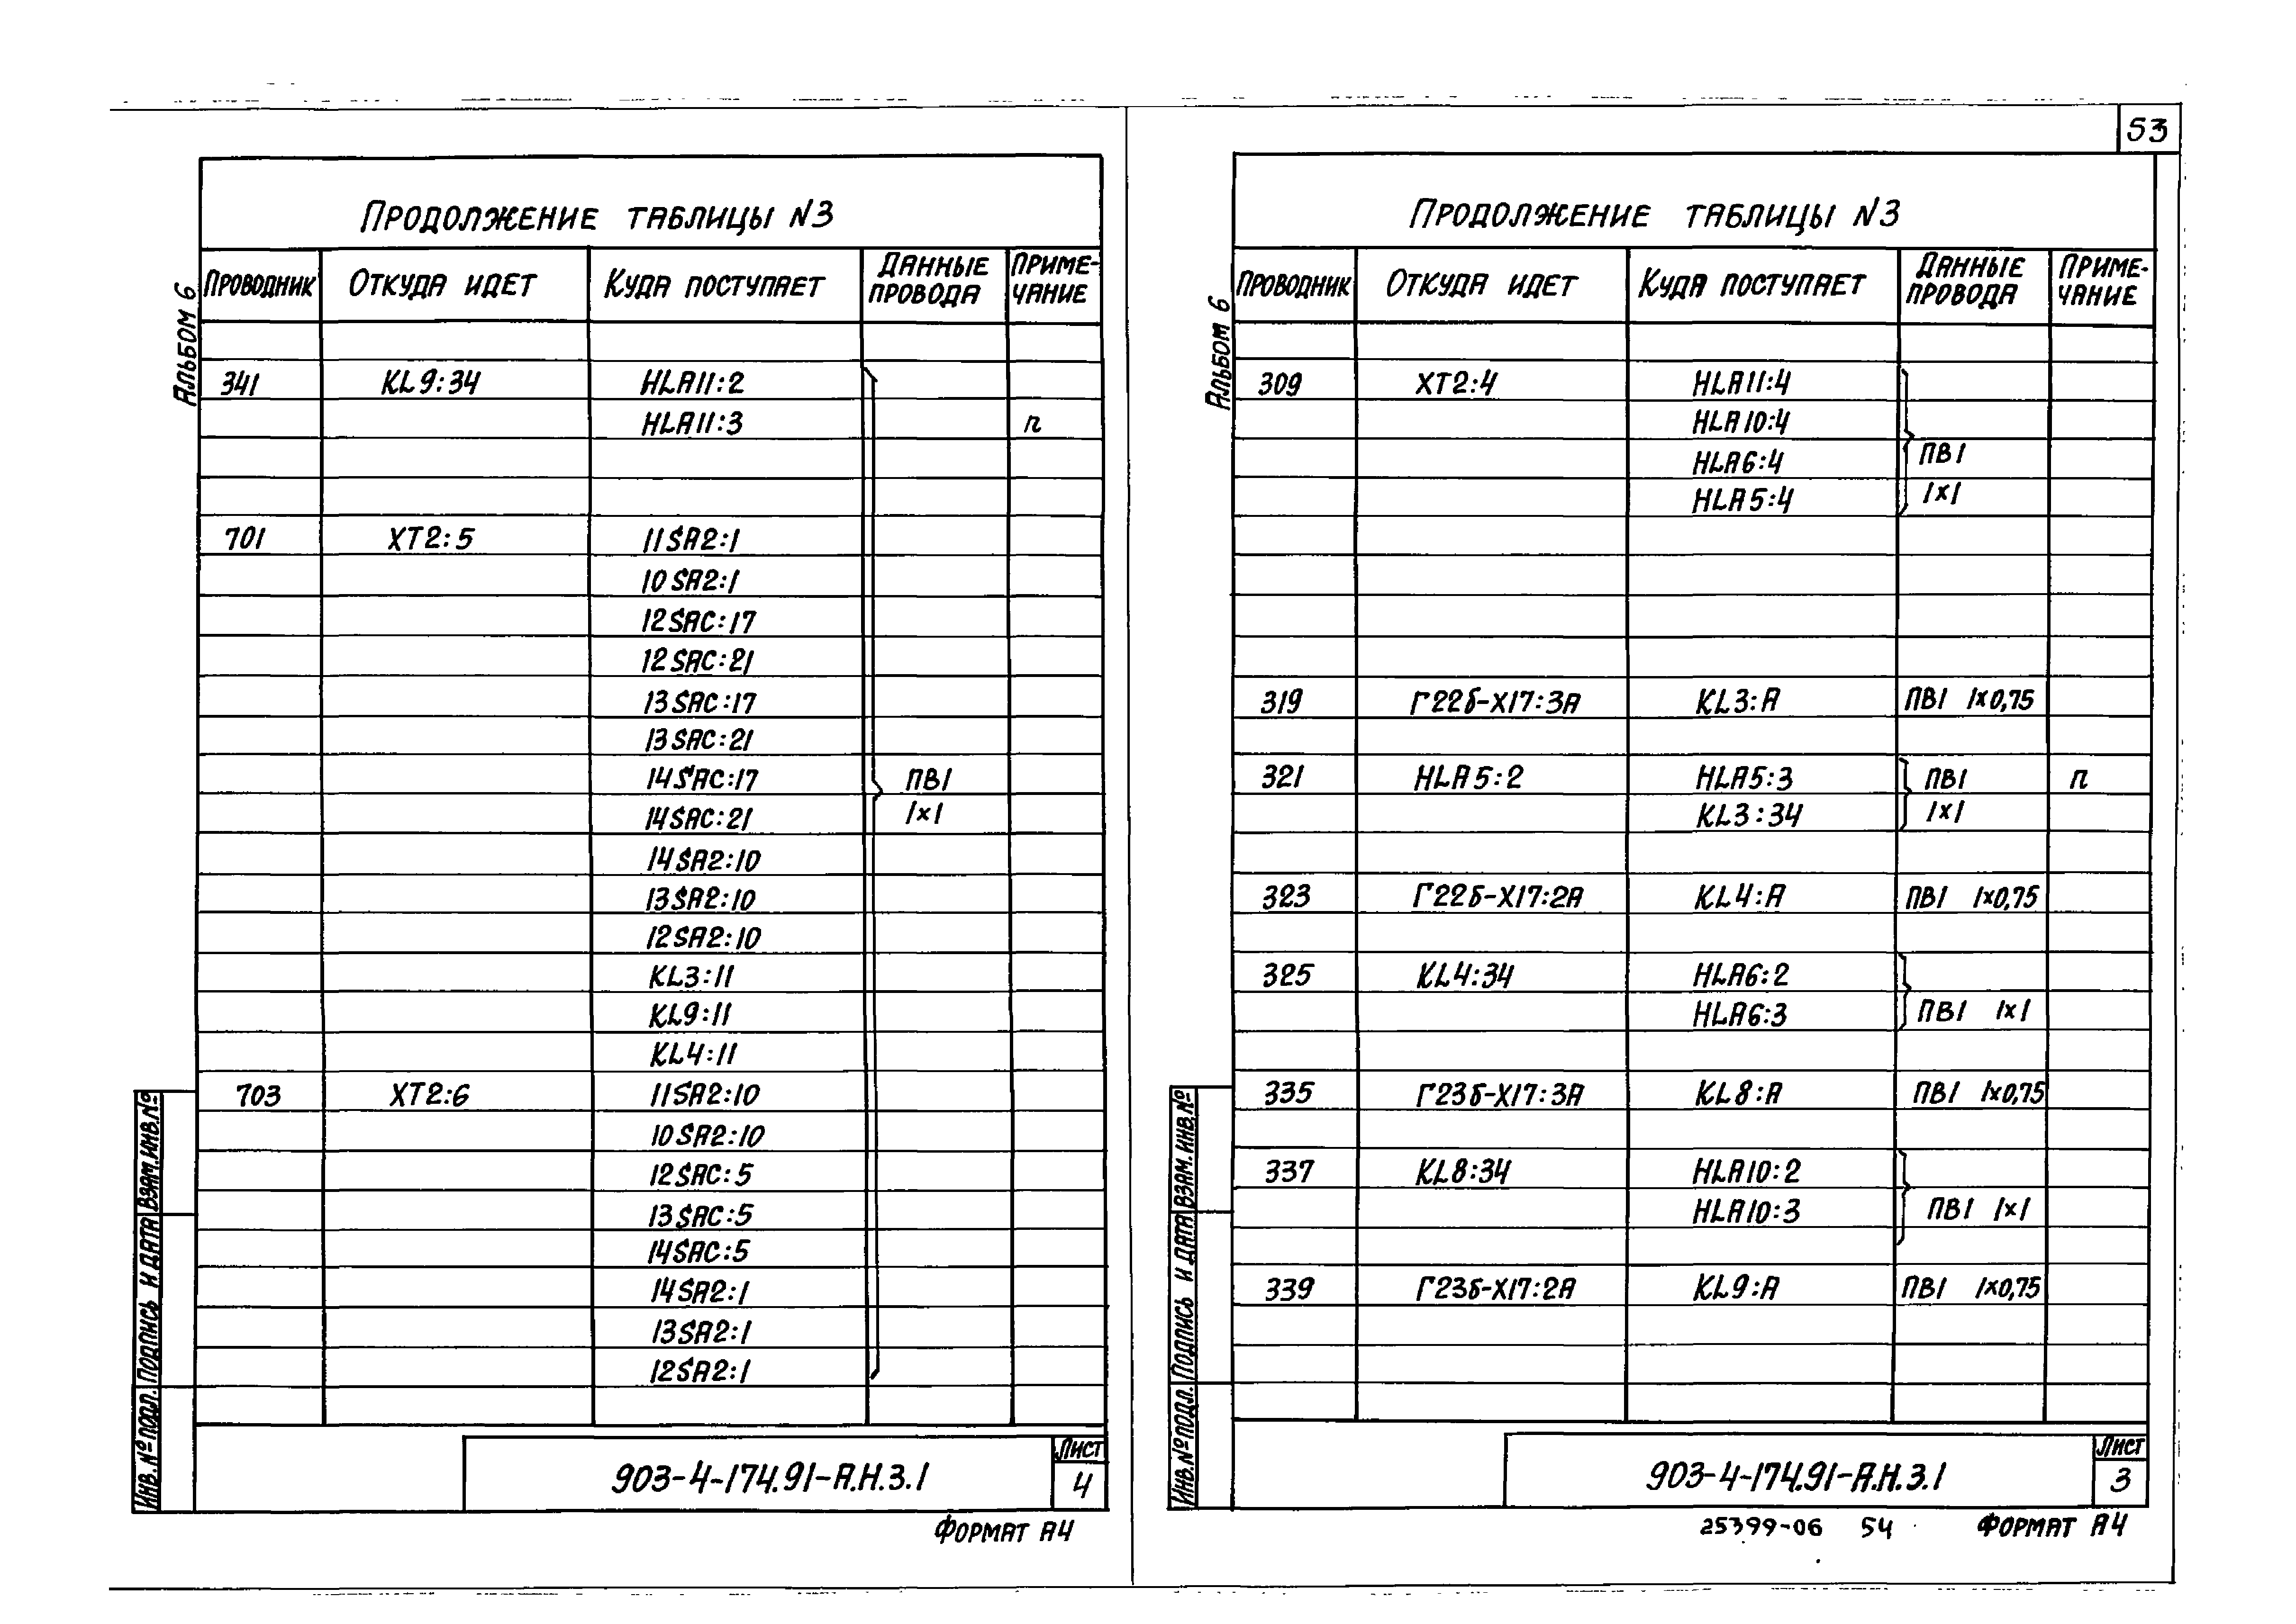 53
Альбом 6
Продолжение таблицы N3
Проводник Откуда идет Куда поступает Данные провода Приме-чание
341 KL9:34 HLA11:2
HLA11:3 п
701 XT2:5 11SA2:1
10SA2:1
12SAC:17
12SAC:21
13SAC:17
13SAC:21
14SAC:17 ПВ1
14SAC:21 1х1
14SA2:10
13SA2:10
12SA2:10
KL3:11
KL9:11
KL4:11
703 XT2:6 11SA2:10
10SA2:10
12SAC:5
13SAC:5
14SAC:5
14SA2:1
13SA2:1
12SA2:1
Инв.№подл. Подпись и дата Взам.инв.№
903-4-174.91-А.Н.3.1
Лист
4
Формат А4
Альбом 6
Продолжение таблицы N3
Проводник Откуда идет Куда поступает Данные провода Приме-чание
309 XT2:4 HLA11:4
HLA10:4
HLA6:4 ПВ1
HLA5:4 1х1
319 Г22б-Х17:3А KL3:A ПВ1 1х0,75
321 HLA5:2 HLA5:3 ПВ1 п
KL3:34 1х1
323 Г22б-Х17:2А KL4:A ПВ1 1х0,75
325 KL4:34 HLA6:2
HLA6:3 ПВ1 1х1
335 Г23б-Х17:3А KL8:A ПВ1 1х0,75
337 KL8:34 HLA10:2
HLA10:3 ПВ1 1х1
339 Г23б-Х17:2А KL9:A ПВ1 1х0,75
Инв.№подл. Подпись и дата Взам.инв.№
903-4-174.91-А.Н.3.1
Лист
3
25399-06 54 Формат А4